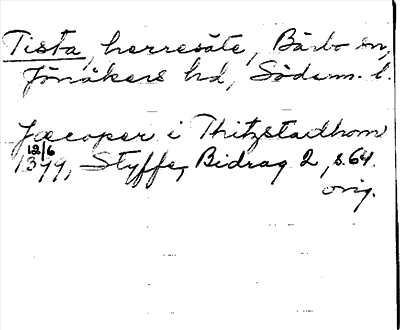 Tista, herresäte, Bärbo sn,
Jönåkers hd, Söderm. l.
Jacoper i Thitzstadhom
12/6
1399, Styffe, Bidrag 2, s. 64.
orig.